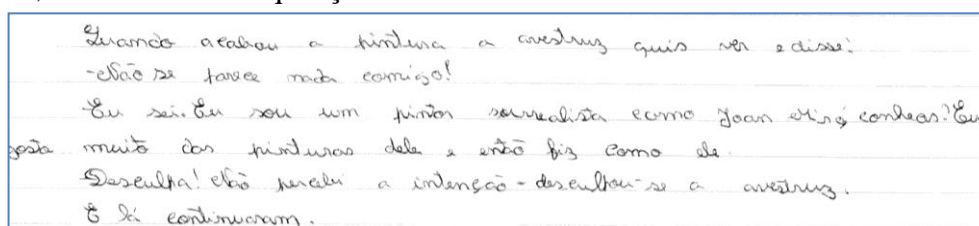 Quando acabou a pintura a avestruz quis ver e disse:
-Não se parece nada comigo!
Eu sei. Eu sou um pintor surrealista como Joan Miró conheces? Eu
gosta muito das pinturas dele e então fiz como ele.
Desculpa! Não percebi a intenção - desculpou-se a avestruz.
E lá continuaram.